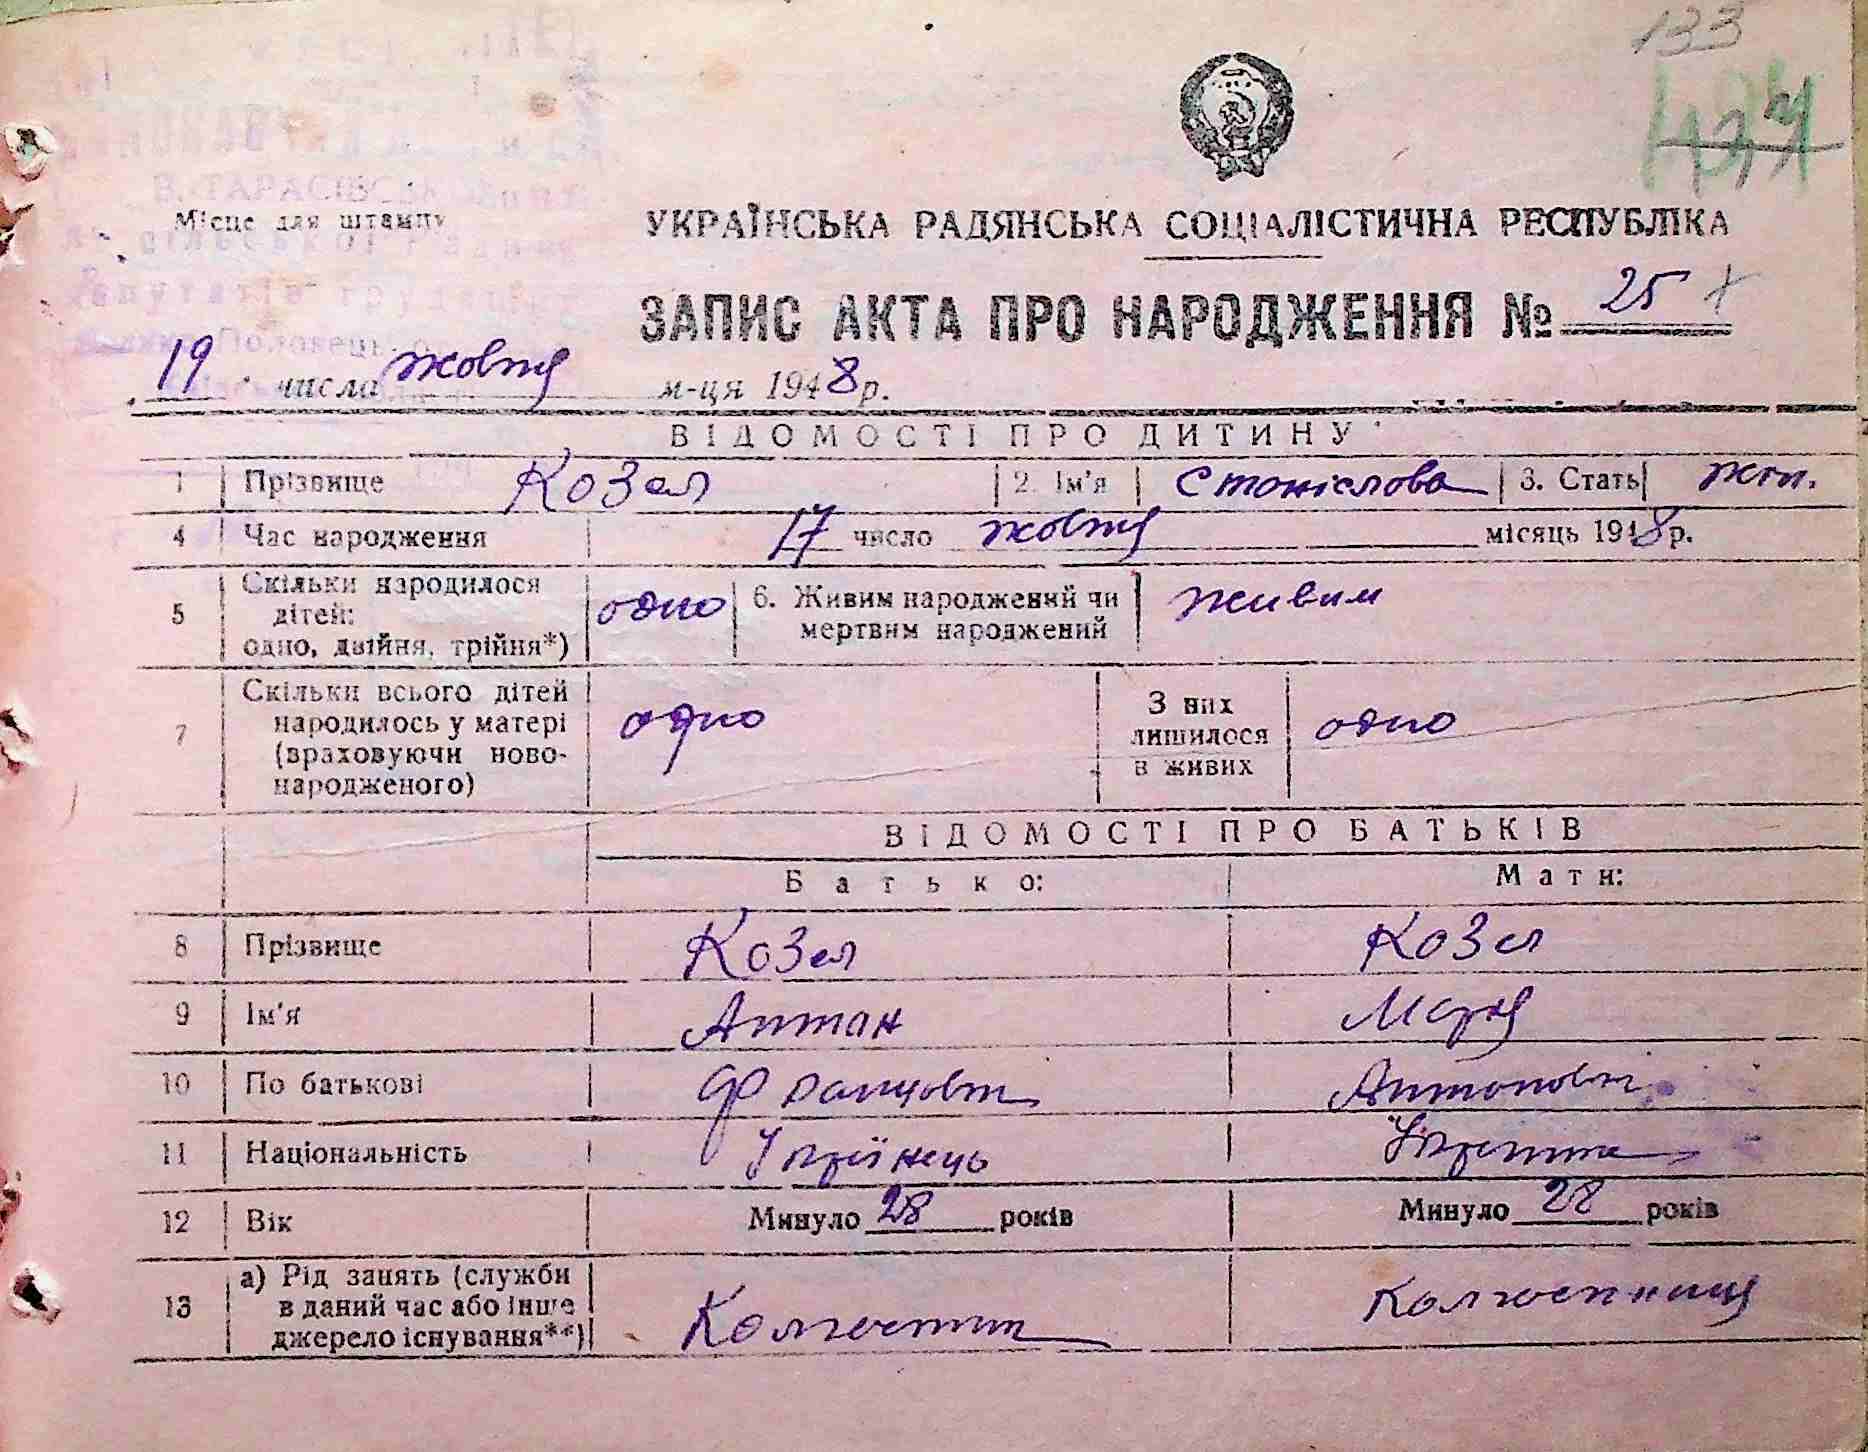 133
Місце для штампу
В. ТАРАСІВСЬКОЇ
сільської Ради
депутатів трудящих
УКРАЇНСЬКА РАДЯНСЬКА СОЦІАЛІСТИЧНА РЕСПУБЛІКА
ЗАПИС АКТА ПРО НАРОДЖЕННЯ № 25
19 числа жовтня м-ця 1948 р.
ВІДОМОСТІ ПРО ДИТИНУ
1 Прізвище Козел 2. Ім'я Станіслова 3. Стать жін.
4 Час народження 17 число жовтня місяць 1948 р.
5 Скільки народилося дітей: одно, двійня, трійня*) одно 6. Живим народжений чи мертвим народжений живим
7 Скільки всього дітей народилось у матері (враховуючи новонародженого) одно З них лишилося в живих одно
ВІДОМОСТІ ПРО БАТЬКІВ
Батько: Мати:
8 Прізвище Козел Козел
9 Ім'я Антан Марія
10 По батькові Францовіч Антоновн
11 Національність Українець Українка
12 Вік Минуло 28 років Минуло 28 років
13 а) Рід занять (служби в даний час або інше джерело існування**) Колгоспник Колгоспниця